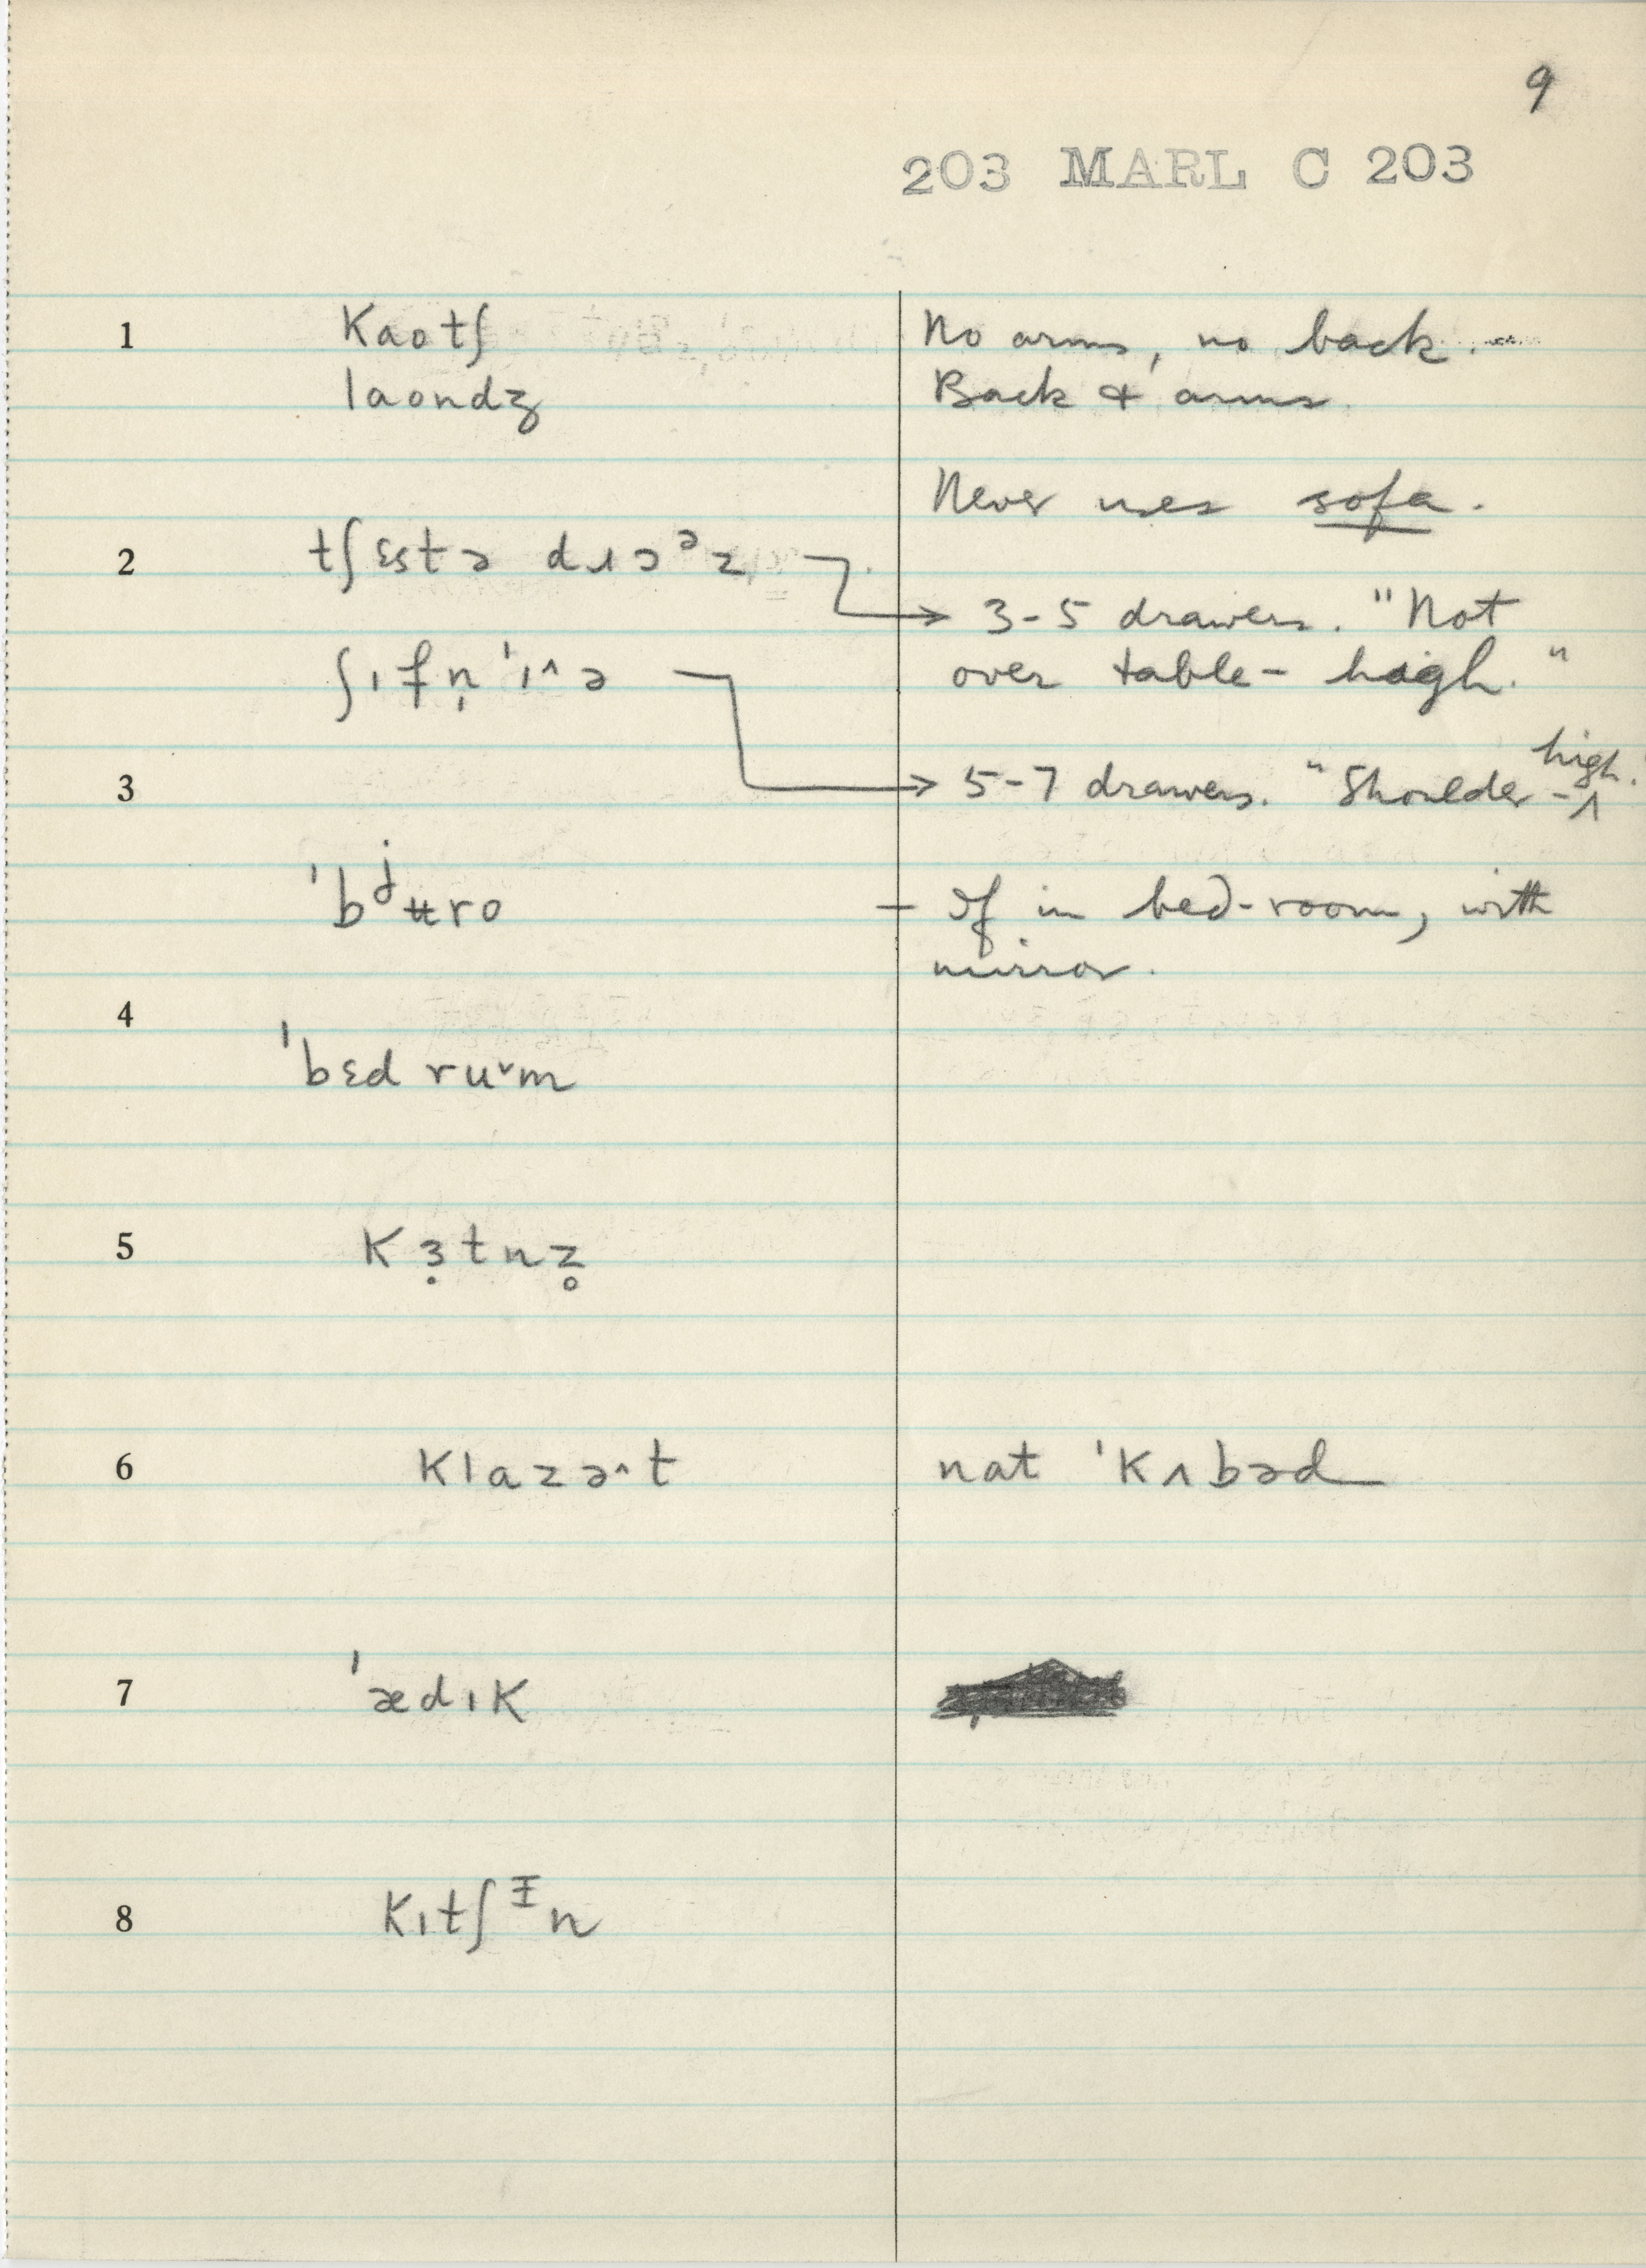 9
203 MARL C 203
1 kaotʃ No arms, no back.
laondʒ Back & arms
Never uses sofa.
2 tʃɛstə dɹɔᵊz
3-5 drawers. "Not
ʃɪfn̩ˈɪ^ə over table-high."
high.
3 5-7 drawers. "Shoulder-^
ˈbʲʉro - If in bed-room, with
mirror.
4
ˈbɛd ruᵛm
5 kɜ̣tnz̥
6 klazə^t nat ˈkʌbəd
7 ˈædɪk
8 kɪtʃᵻn